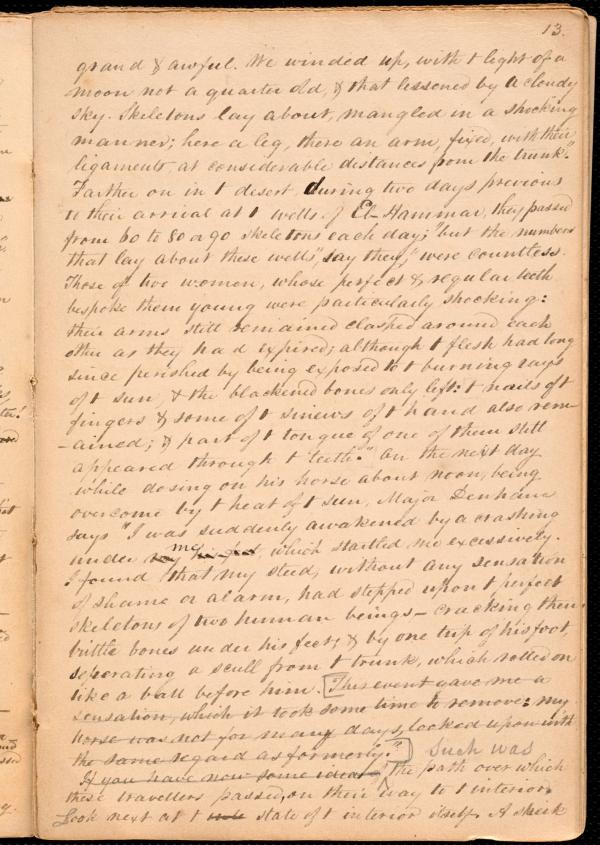 13.
grand & awful. We winded up, with t light of a
moon not a quarter old, & that lessened by a cloudy
sky. Skeletons lay about, mangled in a shocking
manner; here a leg, there an arm, fixed, with their
ligaments, at considerable distances from the trunk".
Farther on in t desert, during two days previous
to their arrival at t wells of El-Hammar, they passed
from 60 to 80 or 90 skeletons each day; "but the numbers
that lay about these wells", say they, "were countless.
Those of two women, whose perfect & regular teeth
bespoke them young were particularly shocking:
their arms still remained clasped around each
other as they had expired; although t flesh had long
since perished by being exposed to t burning rays
of t sun, & the blackened bones only left: t nails of t
fingers & some of t sinews of t hand also rem-
-ained; & part of t tongue of one of them still
appeared through t teeth." On the next day
while dosing on his horse about noon, being
overcome by t heat of t sun, Major Denham
says "I was suddenly awakened by a crashing
under me, which startled me excessively.
I found that my steed, without any sensation
of shame or alarm, had stepped upon t perfect
skeletons of two human beings – cracking their
brittle bones under his feet; & by one trip of his foot,
seperating a scull from t trunk, which rolled on
like a ball before him. [This event gave me a
sensation, which it took some time to remove: my
horse was not for many days, looked upon with
the same regard as formerly."] Such was
If you have now some idea of the path over which
these travellers passed, on their way to t interior.
Look next at t state of t interior itself. A sheik